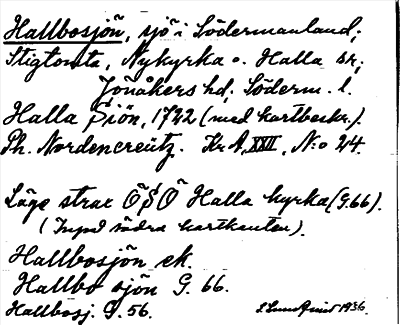 Hallbosjön, sjö i Södermanland;
Stigtomta, Nykyrka o. Halla sr;
Jönåkers hd, Söderm. l.
Halla Siön, 1722 (med kartbeskr.).
Ph. Nordencreütz. Kr A, XXII, N:o 24.
Läge strax ÖSÖ Halla kyrka (G.66).
(Invid södra kartkanten).
Hallbosjön ek.
Hallbo sjön G. 66.
Hallbosj. G. 56.
S. Lundqvist 1936.